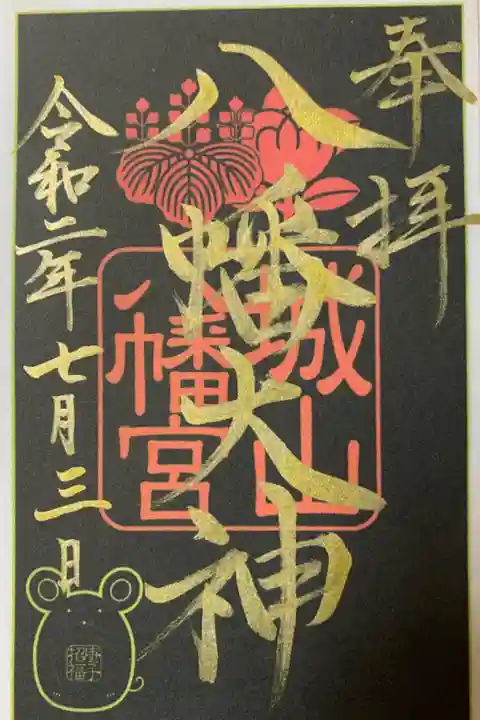 奉拝
八幡大神
城山
八幡宮
令和二年七月三日